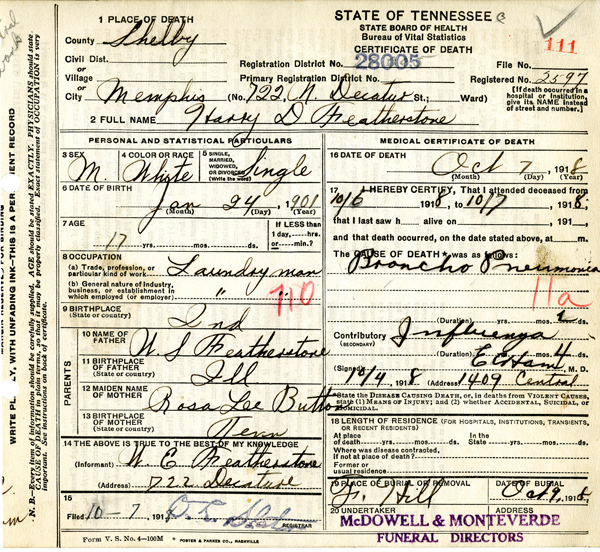 STATE OF TENNESSEE
STATE BOARD OF HEALTH
Bureau of Vital Statistics
CERTIFICATE OF DEATH
1 PLACE OF DEATH
County Shelby
Civil Dist.
Village
or
City Memphis (No. 722 N Decatur St.; Ward)
Registration District No. 28005 File No. 111
Primary Registration District No. Registered No. 2597
[If death occurred in a hospital or institution, give its NAME instead of street and number.]
2 FULL NAME Harry D Featherstone
PERSONAL AND STATISTICAL PARTICULARS
3 SEX M.
4 COLOR OR RACE White
5 SINGLE, MARRIED, WIDOWED, OR DIVORCED (Write the word) Single
6 DATE OF BIRTH Jan 24 1901
(Month) (Day) (Year)
7 AGE 17 yrs. mos. ds.
If LESS than 1 day, hrs. or min.?
8 OCCUPATION
(a) Trade, profession, or particular kind of work Laundry man
(b) General nature of industry, business, or establishment in which employed (or employer) " "
710
9 BIRTHPLACE (State or country) Ind
PARENTS
10 NAME OF FATHER W. S Featherstone
11 BIRTHPLACE OF FATHER (State or country) Ill
12 MAIDEN NAME OF MOTHER Rosa Lee Button
13 BIRTHPLACE OF MOTHER (State or country) Tenn
14 THE ABOVE IS TRUE TO THE BEST OF MY KNOWLEDGE
(Informant) W. E Featherstone
(Address) 722 Decature
15
Filed 10-7 191 REGISTRAR
MEDICAL CERTIFICATE OF DEATH
16 DATE OF DEATH Oct 7, 1918
(Month) (Day) (Year)
17 I HEREBY CERTIFY, That I attended deceased from
10/6 1918, to 10/7 1918.
that I last saw h alive on 191
and that death occurred, on the date stated above, at m.
The CAUSE OF DEATH * was as follows:
Broncho Pneumonia
11a
(Duration) yrs. mos. ds.
Contributory Influenza
(SECONDARY)
(Duration) yrs. mos. 4 ds.
(Signed) E Ham M. D.
1918 (Address) 1409 Central
State the DISEASE CAUSING DEATH, or, in deaths from VIOLENT CAUSES, state (1) MEANS OF INJURY; and (2) whether ACCIDENTAL, SUICIDAL, or HOMICIDAL.
18 LENGTH OF RESIDENCE (FOR HOSPITALS, INSTITUTIONS, TRANSIENTS, OR RECENT RESIDENTS)
At place of death yrs. mos. ds. In the State yrs. mos. ds.
Where was disease contracted, if not at place of death?
Former or usual residence
19 PLACE OF BURIAL OR REMOVAL F. Hill
DATE OF BURIAL Oct 9, 1918
20 UNDERTAKER ADDRESS
McDOWELL & MONTEVERDE
FUNERAL DIRECTORS
Form V. S. No. 4—100M
PORTER & PARKES CO., NASHVILLE